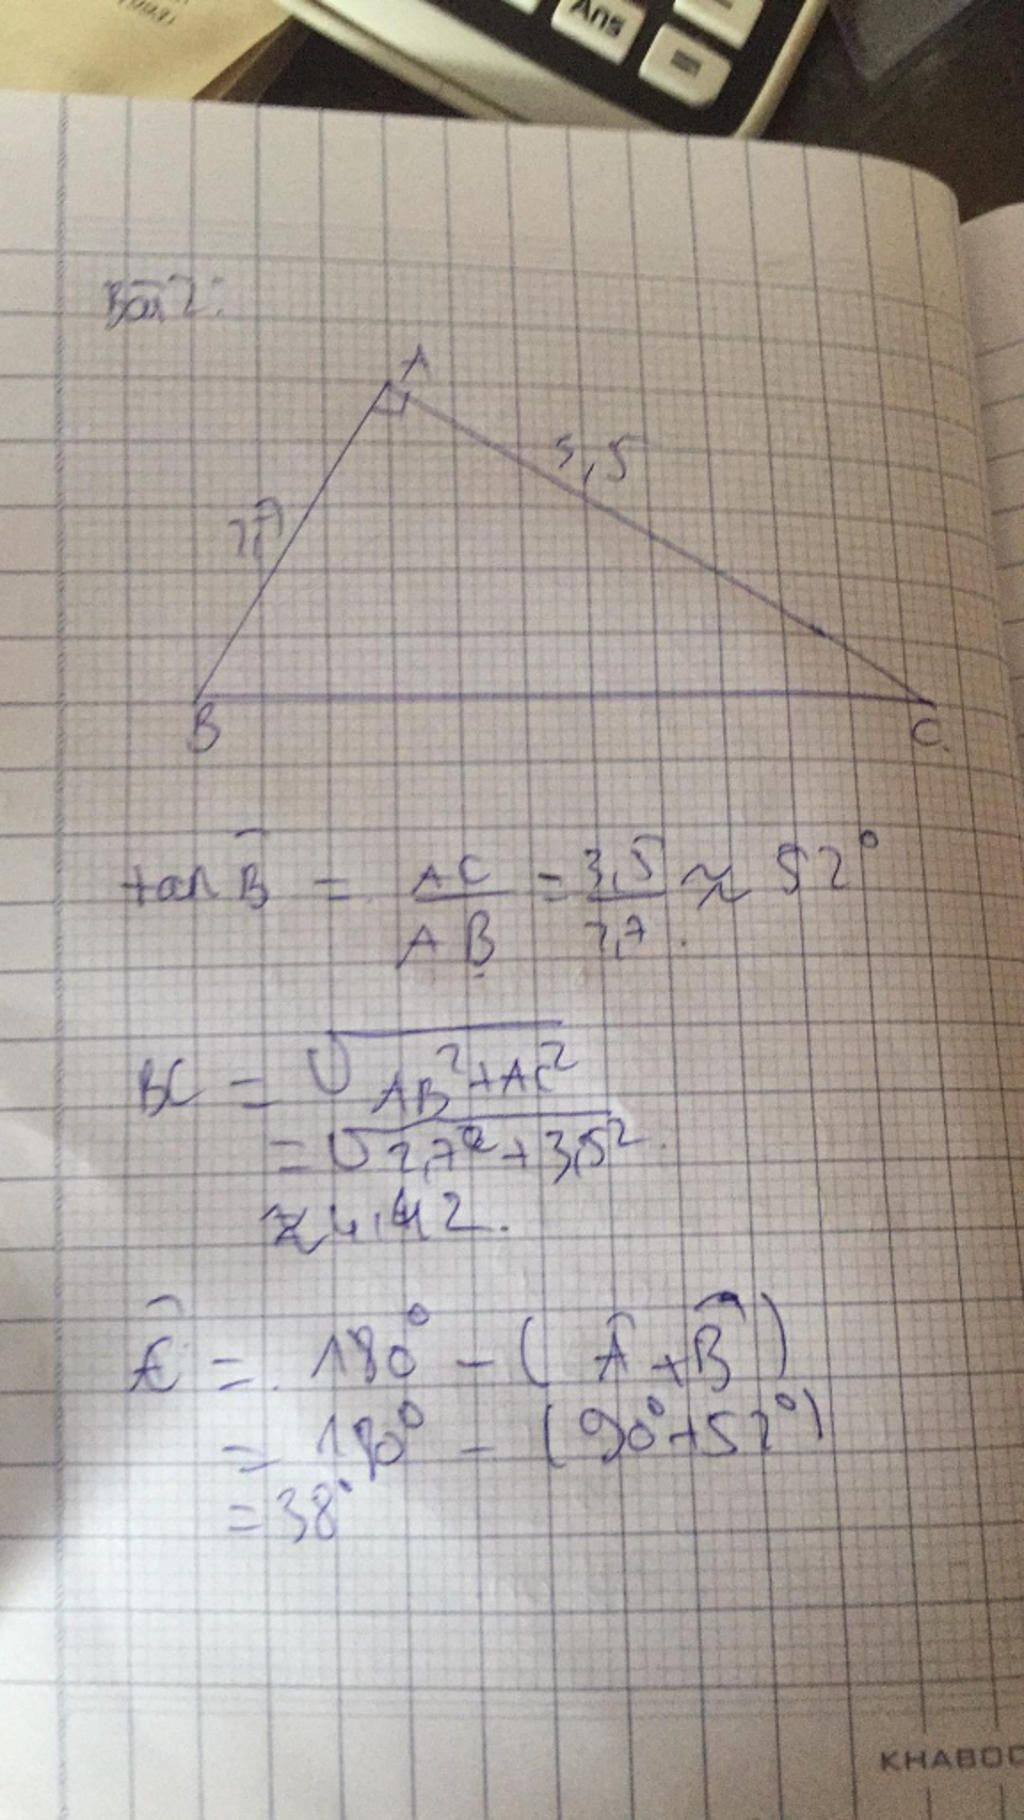 Ans
=
Bài 2:
A
3,5
2,7
B
C
tan B̂ = AC/AB = 3,5/2,7 ≈ 52°
BC = √AB²+AC²
= √2,7²+3,5²
≈ 4,42.
Ĉ = 180° - (Â+B̂)
= 180° - (90°+52°)
= 38°
KHABOO